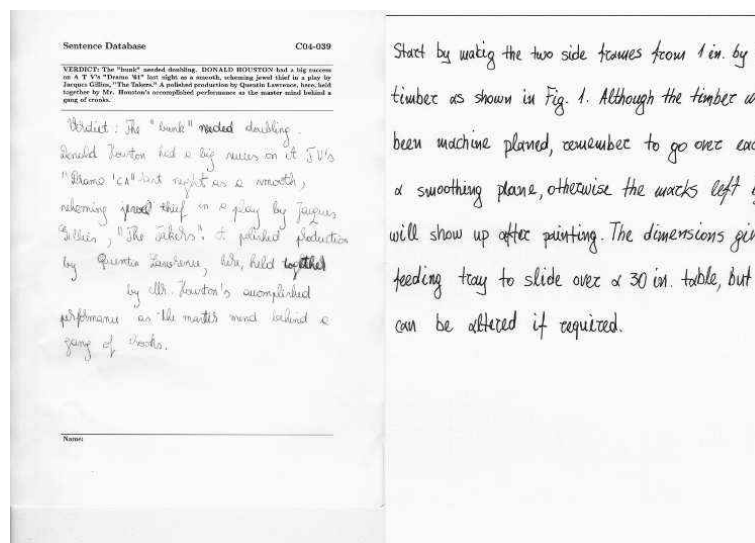 Sentence Database C04-039
VERDICT: The "bunk" needed doubling. DONALD HOUSTON had a big success
on A T V's "Drama '61" last night as a smooth, scheming jewel thief in a play by
Jacques Gillies, "The Takers." A polished production by Quentin Lawrence, here, held
together by Mr. Houston's accomplished performance as the master mind behind a
gang of crooks.
Verdict : The "bunk" needed doubling.
Donald Houston had a big succes on A TV's
"Drama '61" last night as a smooth,
scheming jewel thief in a play by Jacques
Gillies, "The Takers". A polished production
by Quentin Lawrence, here, held together
by Mr. Houston's accomplished
performance as the master mind behind a
gang of crooks.
Name:
Start by making the two side frames from 1 in. by
timber as shown in Fig. 1. Although the timber
been machine planed, remember to go over
a smoothing plane, otherwise the marks left
will show up after painting. The dimensions
feeding tray to slide over a 30 in. table, but
can be altered if required.